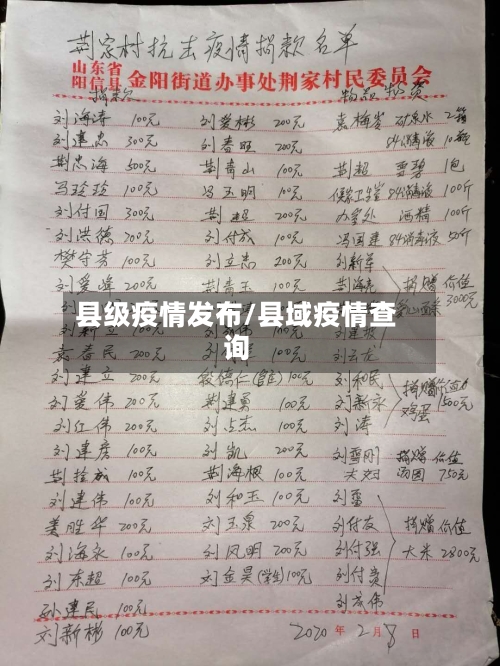 荆家村抗击疫情捐款名单
山东省
阳信县 金阳街道办事处荆家村民委员会
捐款 物款物资
刘海涛 100元 刘爱彬 200元 矿泉水 2箱
刘建忠 300元 刘春旺 200元 84消毒液 10瓶
荆忠海 500元 荆青山 100元 荆超 1包
冯玲玲 100元 冯玉明 100元 84消毒液 100斤
刘付国 300元 200元 办事处 酒精 100斤
刘洪德 200元 刘付成 100元 冯国建 84消毒液 50斤
樊守芳 100元 刘立志 200元 刘新军
刘爱峰 200元 荆青玉 100元 荆海亮 捐赠价值
3000元
县级疫情发布/县域疫情查
询
袁春民 200元 100元 刘云龙
刘建立 200元 100元 刘和民 捐赠价值
刘爱伟 200元 荆建勇 100元 刘新永 鸡蛋 1500元
刘红伟 200元 刘占杰 100元 刘涛
刘建彦 100元 刘凯 200元 刘雪刚 捐赠价值
荆拴成 100元 荆海根 100元 汤圆 750元
刘建伟 100元 刘和玉 100元 刘雷
姜胜华 200元 刘玉泉 200元 刘付友 捐赠价值
刘海永 100元 刘凤明 200元 刘付强 大米 2800元
刘东超 100元 刘金昊(学生)100元 刘付贵
孙建民 100元 刘成伟
刘新彬 100元 2020年2月8日